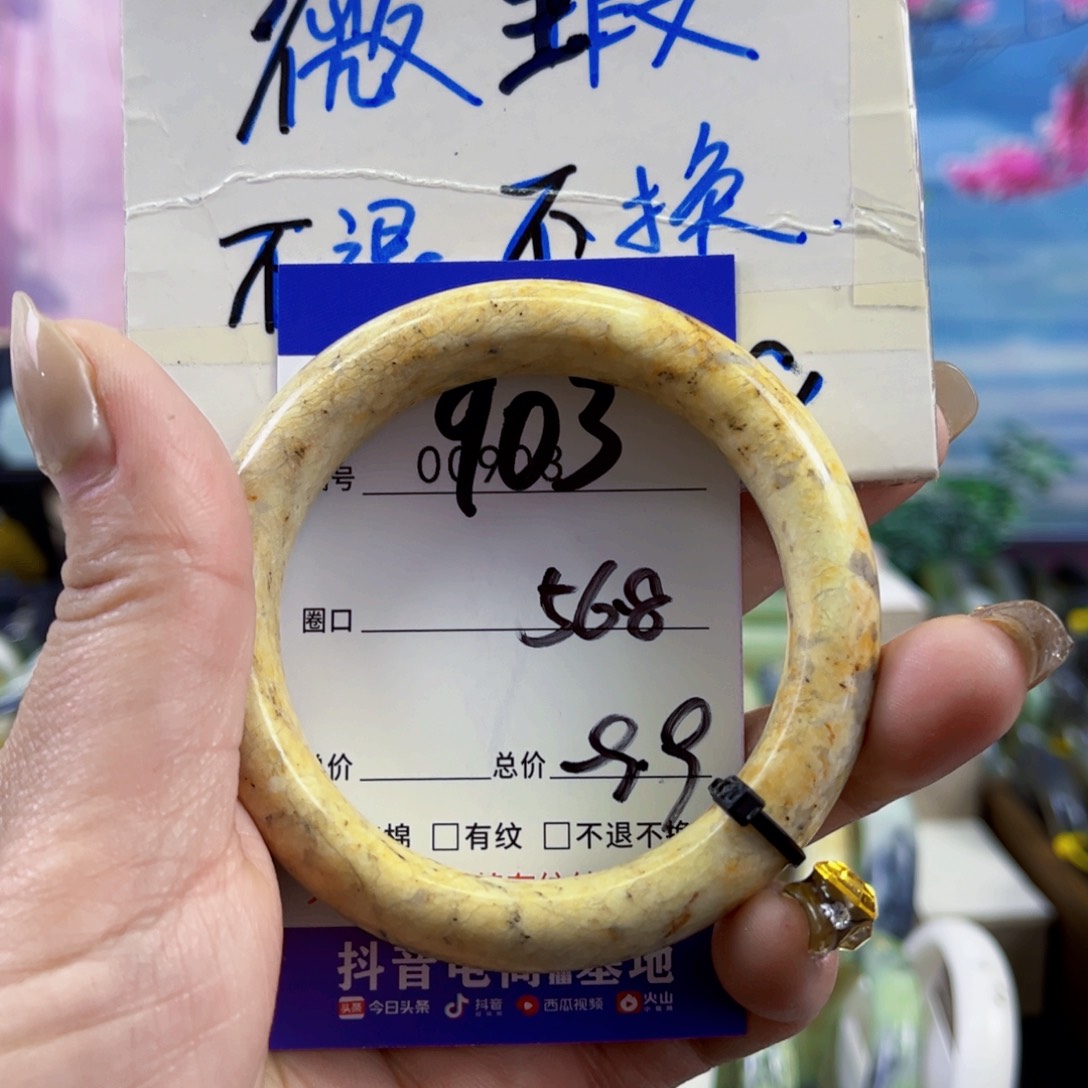 微瑕
不退不换.
903
号 00903
圈口 56.8
价 总价 99
棉 □有纹 □不退不换
抖音电商直播基地
头条 今日头条 抖音 西瓜视频 火山